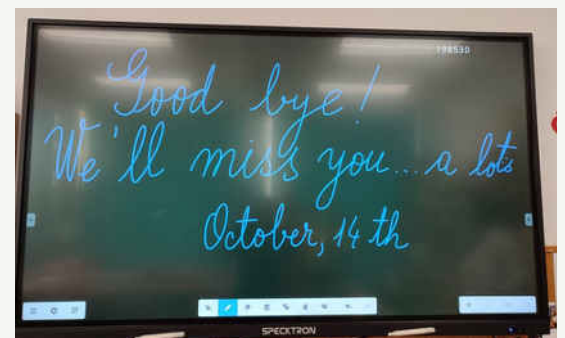 198530
Good bye!
We'll miss you... a lots
October, 14 th
SPECKTRON